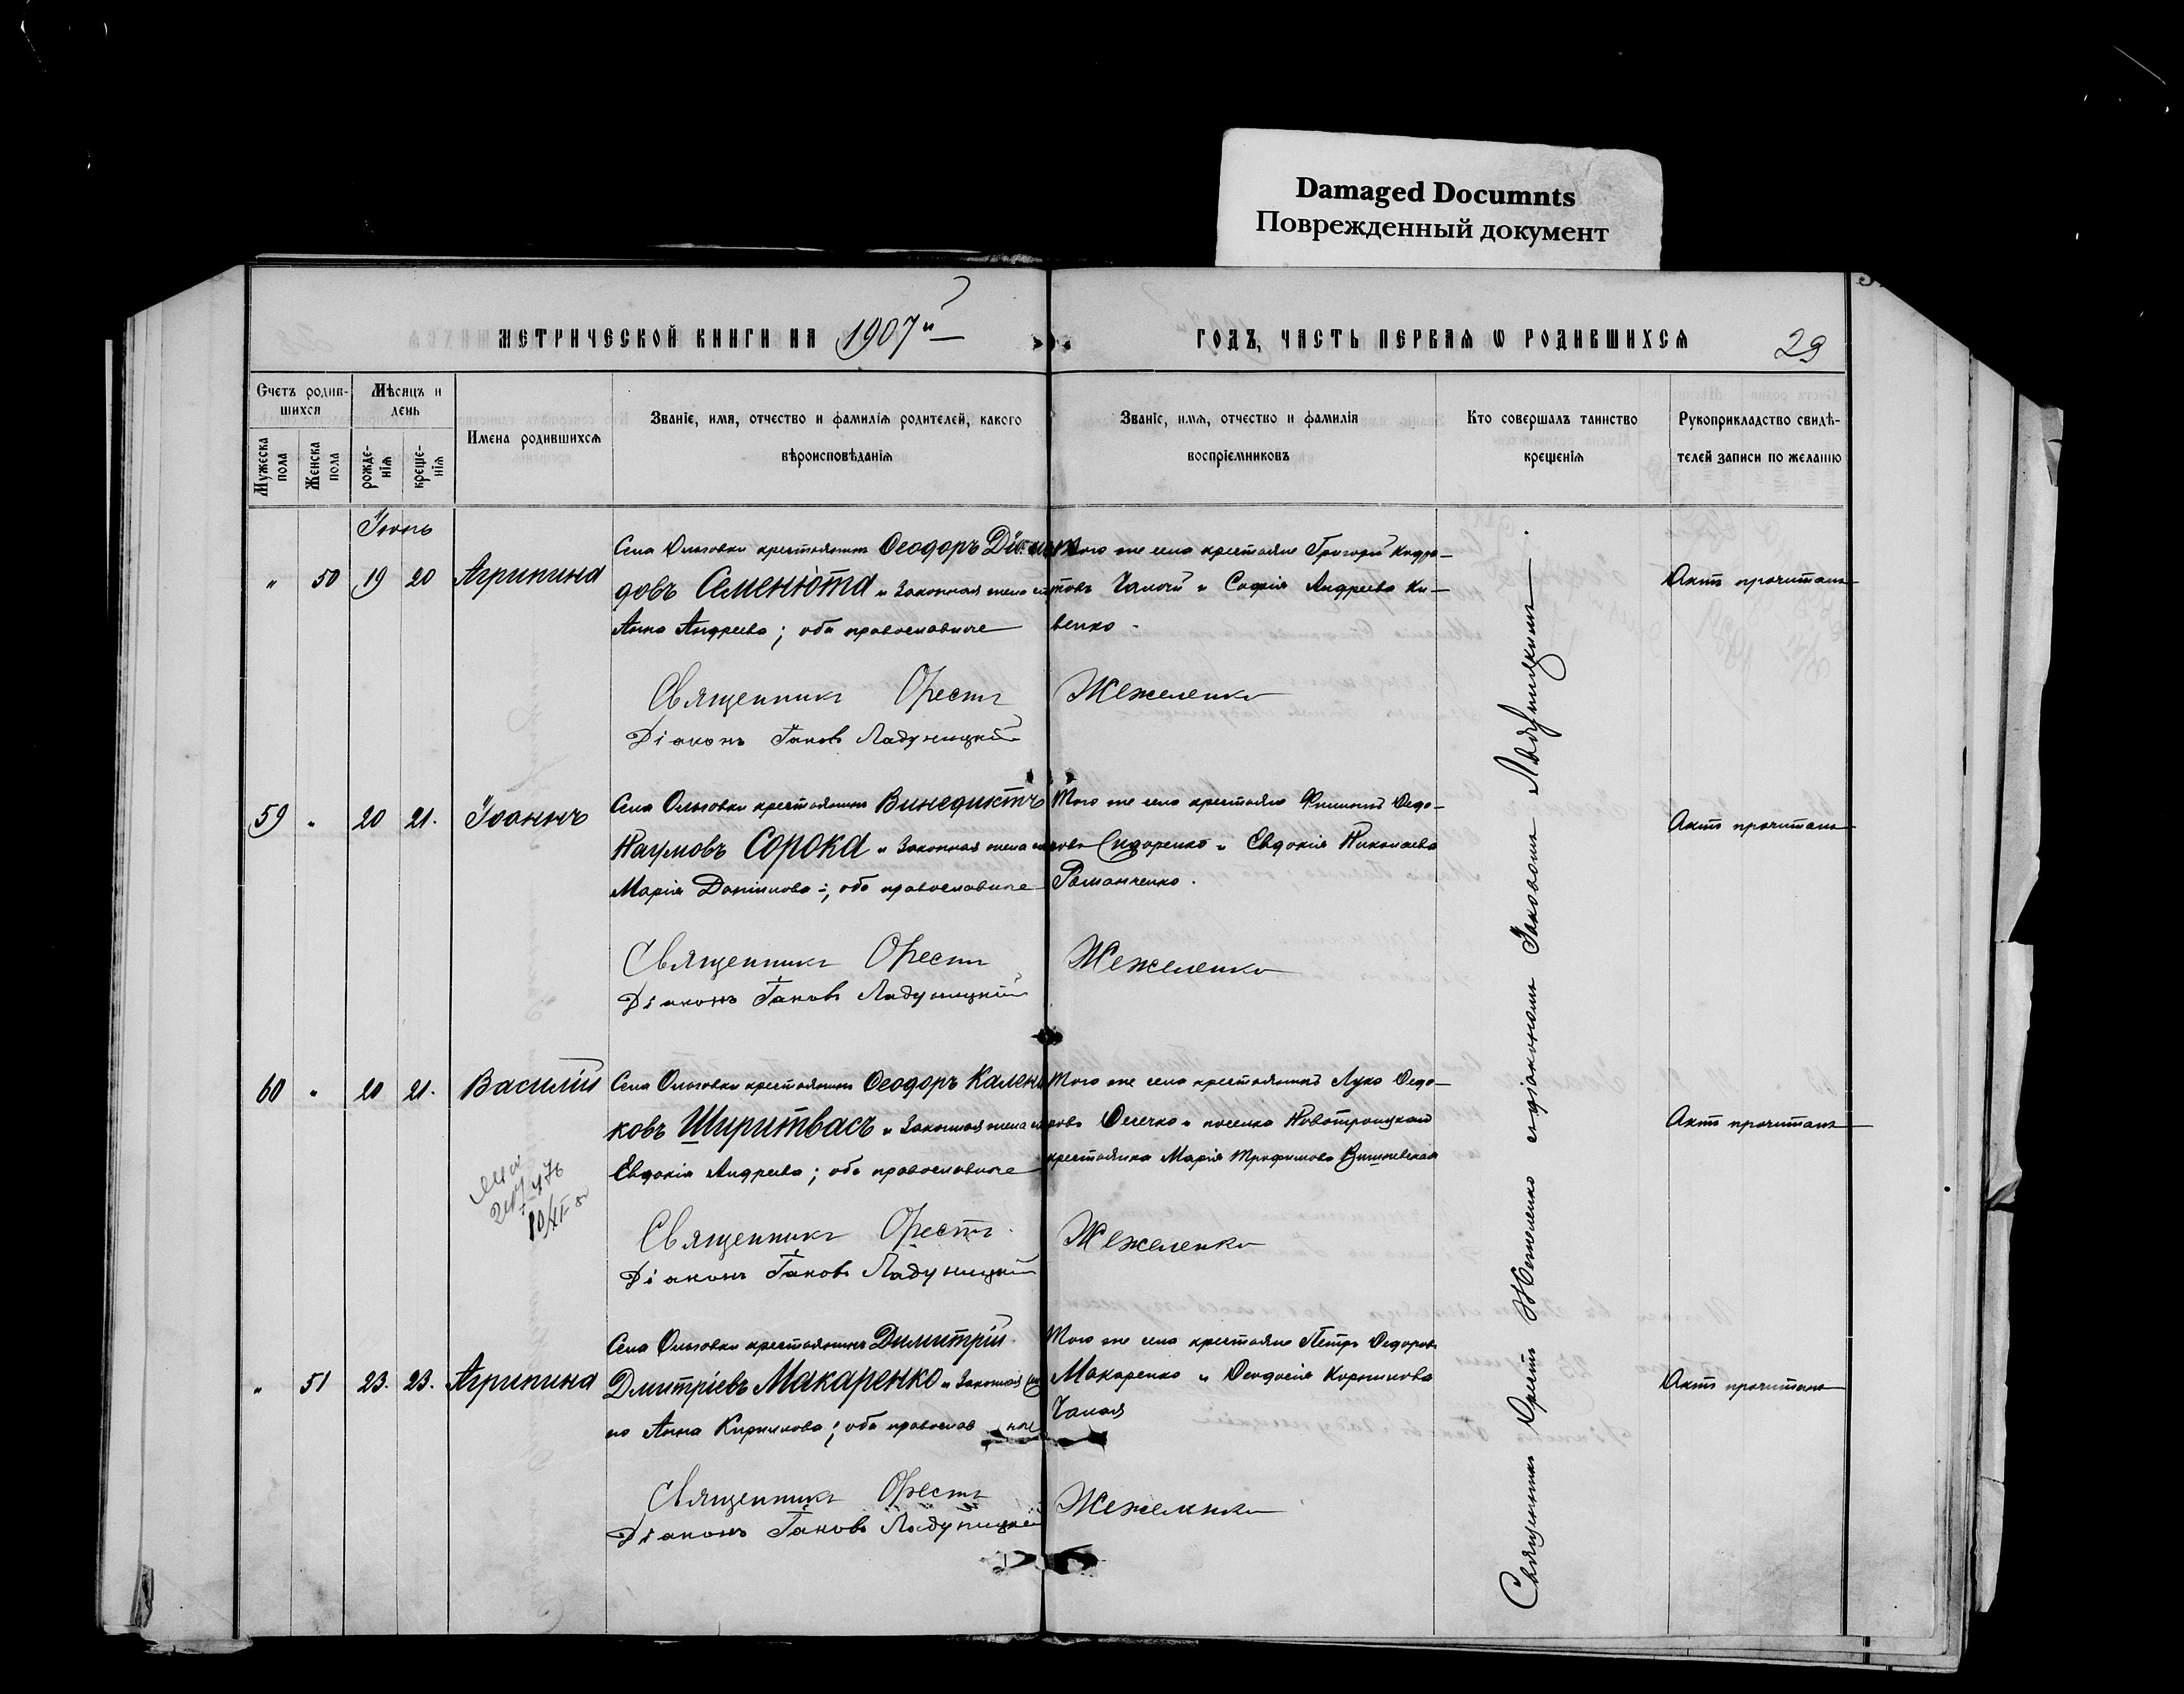 Damaged Documnts
Поврежденный документ
МЕТРИЧЕСКОЙ КНИГИ НА 1907й
ГОДЪ, ЧАСТЬ ПЕРВАЯ Ѡ РОДИВШИХСЯ
29
Счетъ родив-
шихся
Мужеска
пола
Женска
пола
Мѣсяцъ и
день
рожде-
нія
креще-
нія
Имена родившихся
Званіе, имя, отчество и фамилія родителей, какого
вѣроисповѣданія
Званіе, имя, отчество и фамилія
воспріемниковъ
Кто совершалъ таинство
крещенія
Рукоприкладство свидѣ-
телей записи по желанію
Іюнь
" 50 19 20 Агрипина
Села Ольговки крестьянинъ Ѳеодоръ
довъ Семенюта и законная жена его
Анна Андреева; оба православные
Того же села крестьяне Григорій Кодра-
товъ Чалый и Софія Андреева Ки-
венко.
Священникъ Орестъ Жежеленко
Діаконъ Іаковъ Ладуницкій
Актъ прочитанъ
59 " 20 21. Іоаннъ
Села Ольговки крестьянинъ Винедиктъ
Наумовъ Сорока и законная жена его
Марія Даніилова; оба православные
Того же села крестьяне Филиппъ Ѳедо-
ровъ Сидоренко и Евдокія Николаева
Романченко.
Священникъ Орестъ Жежеленко
Діаконъ Іаковъ Ладуницкій
Актъ прочитанъ
60 " 20 21. Василій
Села Ольговки крестьянинъ Ѳеодоръ Калени
ковъ Ширитвасъ и законная жена его
Евдокія Андреева; оба православные
Того же села крестьянинъ Лука Ѳедо-
ровъ Ѳесечко и поселка Новотроицкай
крестьянка Марія Трофимова Вишневская
Священникъ Орестъ Жежеленко
Діаконъ Іаковъ Ладуницкій
Актъ прочитанъ
" 51 23. 23. Агрипина
Села Ольговки крестьянинъ Димитрій
Дмитріевъ Макаренко и законная же
на Анна Кирилова; оба православ ные
Того же села крестьяне Петръ Ѳедоровъ
Макаренко и Ѳеодосія Корнилова
Чалая
Священникъ Орестъ Жежеленко
Діаконъ Іаковъ Ладуницкій
Актъ прочитанъ
Священникъ Орестъ Жежеленко съ діакономъ Іаковомъ Ладуницкимъ.